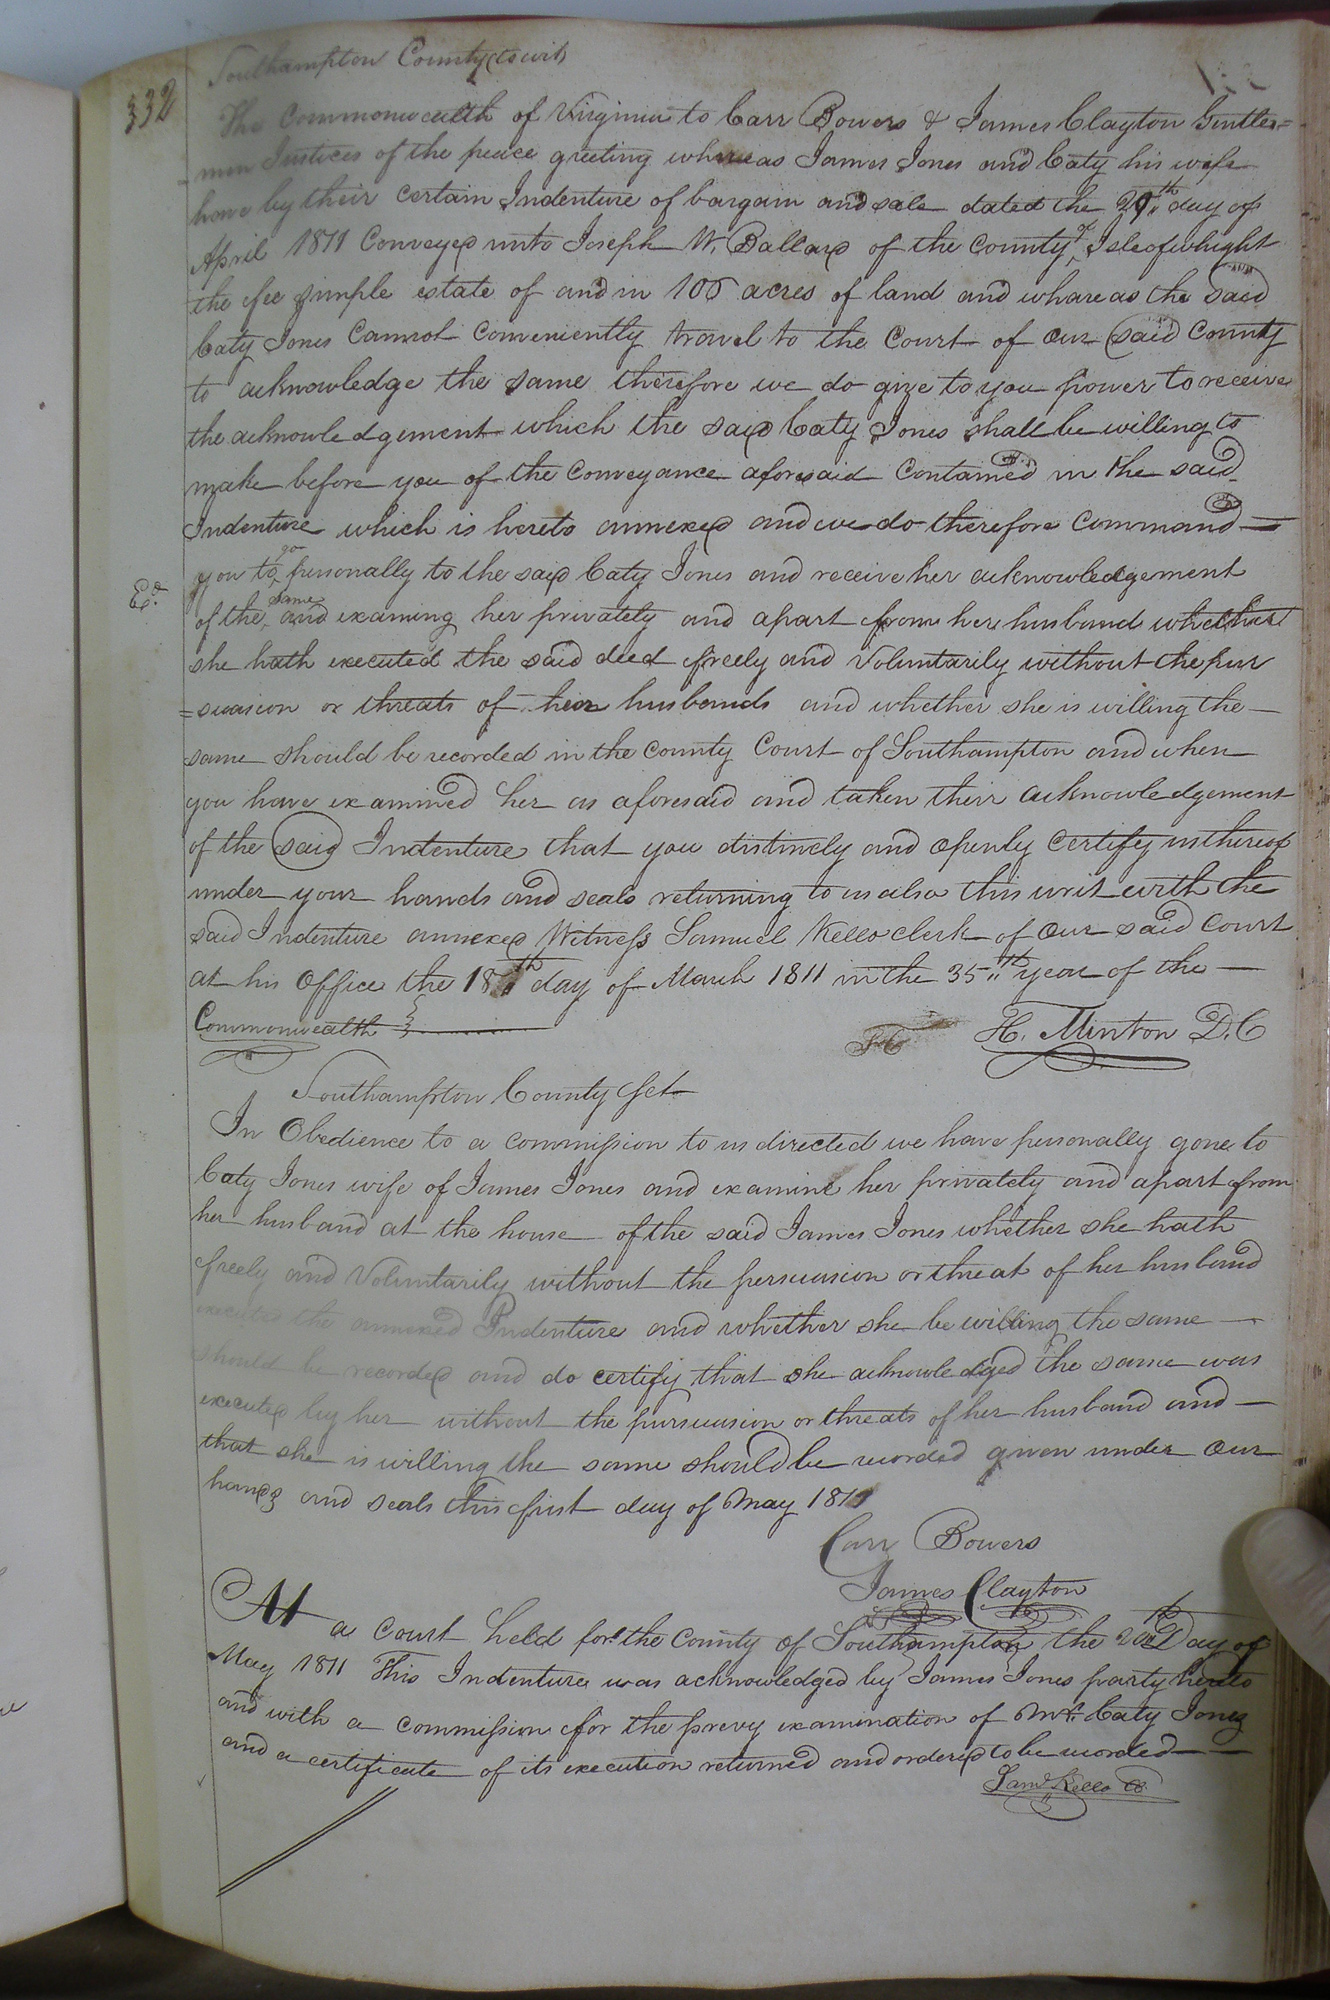 332
Southampton County (to wit)
The Commonwealth of Virginia to Carr Bowers & James Clayton Gentle=
=men Justices of the peace greeting whereas James Jones and Caty his wife
have by their certain Indenture of bargain and sale dated the 29th day of
April 1811 Conveyed unto Joseph W. Ballard of the County of Isleofwhight
the fee simple estate of and in 106 acres of land and whareas the said
Caty Jones Cannot conveniently travel to the Court of our said County
to acknowledge the same therefore we do give to you power to receive
the acknowledgement which the said Caty Jones shall be willing to
make before you of the Conveyance aforesaid Contained in the said
Indenture which is hereto annexed and we do therefore Command
you to go personally to the said Caty Jones and receive her acknowledgement
Ed.
of the same and examing her privately and apart from her husband whether
she hath executed the said deed freely and Voluntarily without the pur
=suasion or threats of her husbands and whether she is willing the
same should be recorded in the County Court of Southampton and when
you have examined her as aforesaid and taken their acknowledgement
of the said Indenture that you distincly and openly Certify us thereof
under your hands and seals returning to us also this writ with the
said Indenture annexed Witness Samuel Kello clerk of our said Court
at his Office the 18th day of March 1811 in the 35th year of the
Commonwealth
H. Minton D.C
Southampton County Sct
In Obedience to a commission to us directed we have personally gone to
Caty Jones wife of James Jones and examine her privately and apart from
her husband at the house of the said James Jones whether she hath
freely and Voluntarily without the persuasion or threat of her husband
executed the annexed Indenture and whether she be willing the same
should be recorded and do certify that she acknowledged the same was
executed by her without the pursuasion or threats of her husband and
that she is willing the same should be recorded given under our
hands and seals this first day of May 1811
Carr Bowers
James Clayton
At a Court held for the County of Southampton the 20th Day of
May 1811 This Indenture was acknowledged by James Jones party hereto
and with a commission for the prevy examination of Mrs. Caty Jones
and a certificate of its execution returned and ordered to be recorded
Saml. Kello CC.